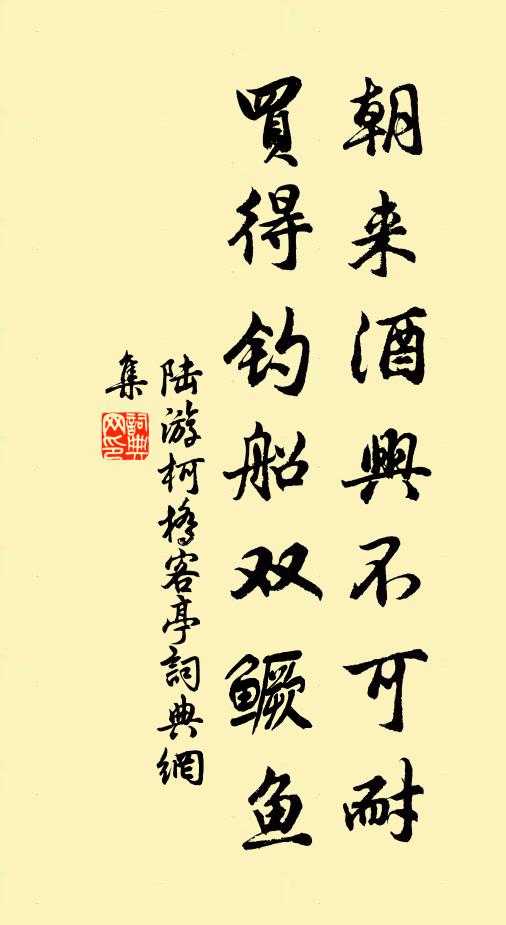 朝来酒興不可耐
買得钓船双鳜鱼
陆游柯橋客亭詞典網
集
詞典
网印